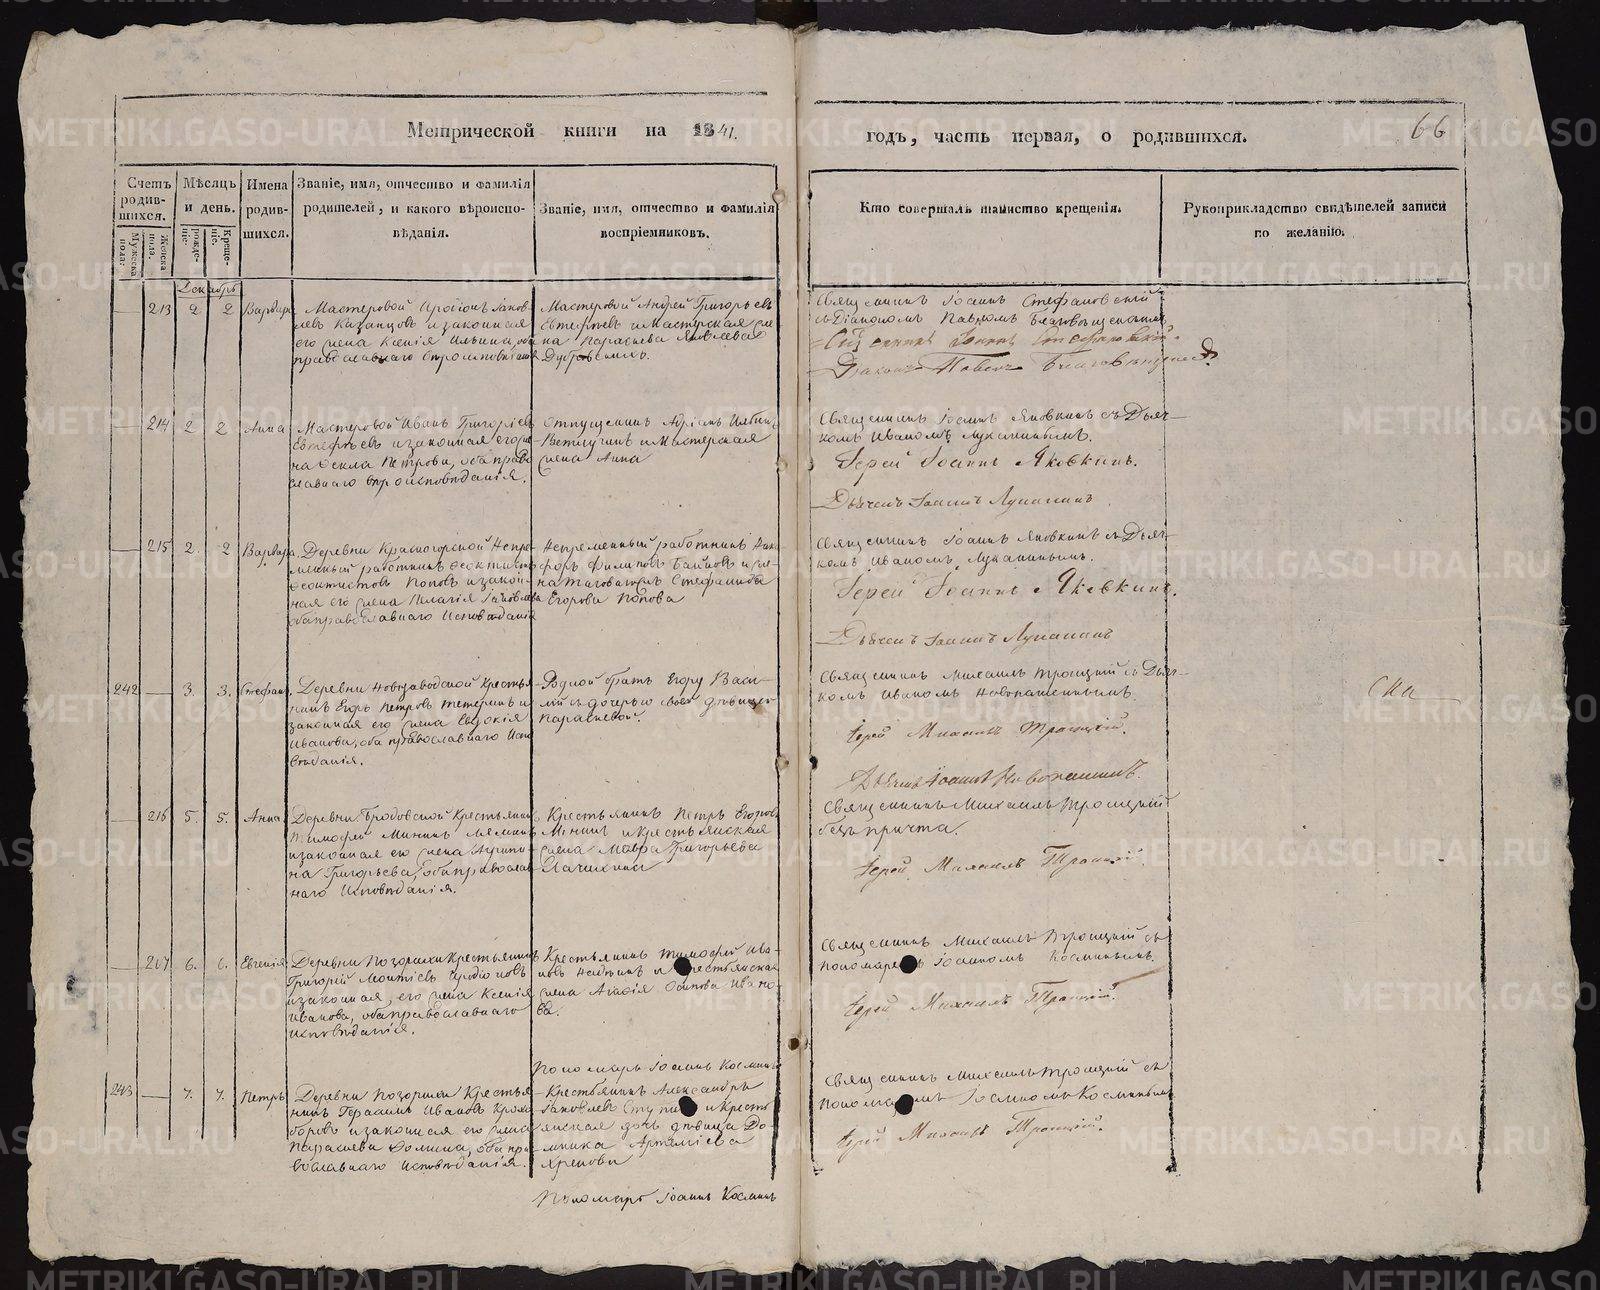 Метрической книги на 1841.
годъ, часть первая, о родившихся.
66
Счетъ родив-шихся.
Мужеска пола.
Женска пола.
Мѣсяцъ и день.
рожде-ніе.
Креще-ніе.
Имена родив-шихся.
Званіе, имя, отчество и фамилія
родителей, и какого вѣроиспо-
вѣданія.
Званіе, имя, отчество и фамилія
воспріемниковъ.
Кто совершалъ таинство крещенія.
Рукоприкладство свидѣтелей записи
по желанію.
Декабрь
213 2 2 Варвара
Мастеровой Яков-
левъ Казанцовъ и законная
его жена Ксенія Ильина, оба
православнаго вѣроисповѣданія
Мастеровой Андрей Григорьевъ
Евтефѣевъ и мастерская же-
на Параскева Яковлева
Священникъ Іоаннъ Стефановскій
съ Діакономъ Павломъ Благовѣщенскимъ
Священникъ Іоаннъ Стефановскій
Діаконъ Павелъ
214 2 2 Анна
Мастеровой Иванъ Григорьевъ
Евтефѣевъ и законная его же-
на Фекла Петрова, оба право-
славнаго вѣроисповѣданія.
и мастерская
жена Анна
Священникъ Іоаннъ Яковкинъ съ Дьяч-
комъ Иваномъ Луканинымъ.
Іерей Іоаннъ Яковкинъ.
Дьячекъ Іоаннъ Луканинъ
215 2. 2 Варвара.
Деревни Красногорской Непре-
менный работникъ Феоктистъ
Феоктистовъ Поповъ и закон-
ная его жена Пелагія Яковлева
оба православнаго исповѣданія
Непременный работникъ Ники-
форъ Филиповъ и же-
на Стефанида
Егорова Попова
Священникъ Іоаннъ Яковкинъ съ Дьяч-
комъ Иваномъ Луканинымъ.
Іерей Іоаннъ Яковкинъ.
Дьячекъ Іоаннъ Луканинъ
242 3. 3. Стефанъ.
Деревни Новозаводской Крестья-
нинъ Егоръ Петровъ Тетеринъ и
законная его жена Евдокія
Иванова, оба православнаго испо-
вѣданія.
Родной братъ Егору Васи-
лій съ дочерью своей дѣвицей
Параскевой.
Священникъ Михаилъ Троицкій съ Дьяч-
комъ Иваномъ Новопашеннымъ
Іерей Михаилъ Троицкій.
216 5. 5. Анна
Деревни Бродовской Крестьянинъ
Тимофей Мининъ
и законная его жена
на Григорьева, оба православ-
наго исповѣданія.
Крестьянинъ Петръ Егоровъ
Мининъ и крестьянская
жена Мавра Григорьева
Священникъ Михаилъ Троицкій
безъ причта.
Іерей Михаилъ Троицкій
217 6. 6. Евгенія
Деревни Позорихи Крестьянинъ
Григорій
и законная его жена Ксенія
Иванова, оба православнаго
исповѣданія.
Крестьянинъ Тимофей Ива-
новъ и крестьянская
жена Агафія Осипова Ивано-
ва.
Священникъ Михаилъ Троицкій съ
пономаремъ Іоанномъ Косминымъ
Іерей Михаилъ Троицкій.
Пономарь Іоаннъ Косминъ
243 7. 7. Петръ
Деревни Позорихи Крестья-
нинъ Герасимъ Ивановъ
и законная его жена
Параскева Фомина, оба пра-
вославнаго исповѣданія.
Крестьянинъ Александръ
Яковлевъ и кресть-
янская дочь дѣвица До-
мника Артамиева
Священникъ Михаилъ Троицкій съ
Пономаремъ Іоанномъ Косминымъ
Іерей Михаилъ Троицкій.
Пономарь Іоаннъ Косминъ